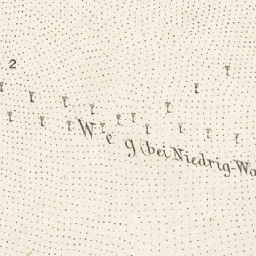 2
Weg (bei Niedrig-Wa